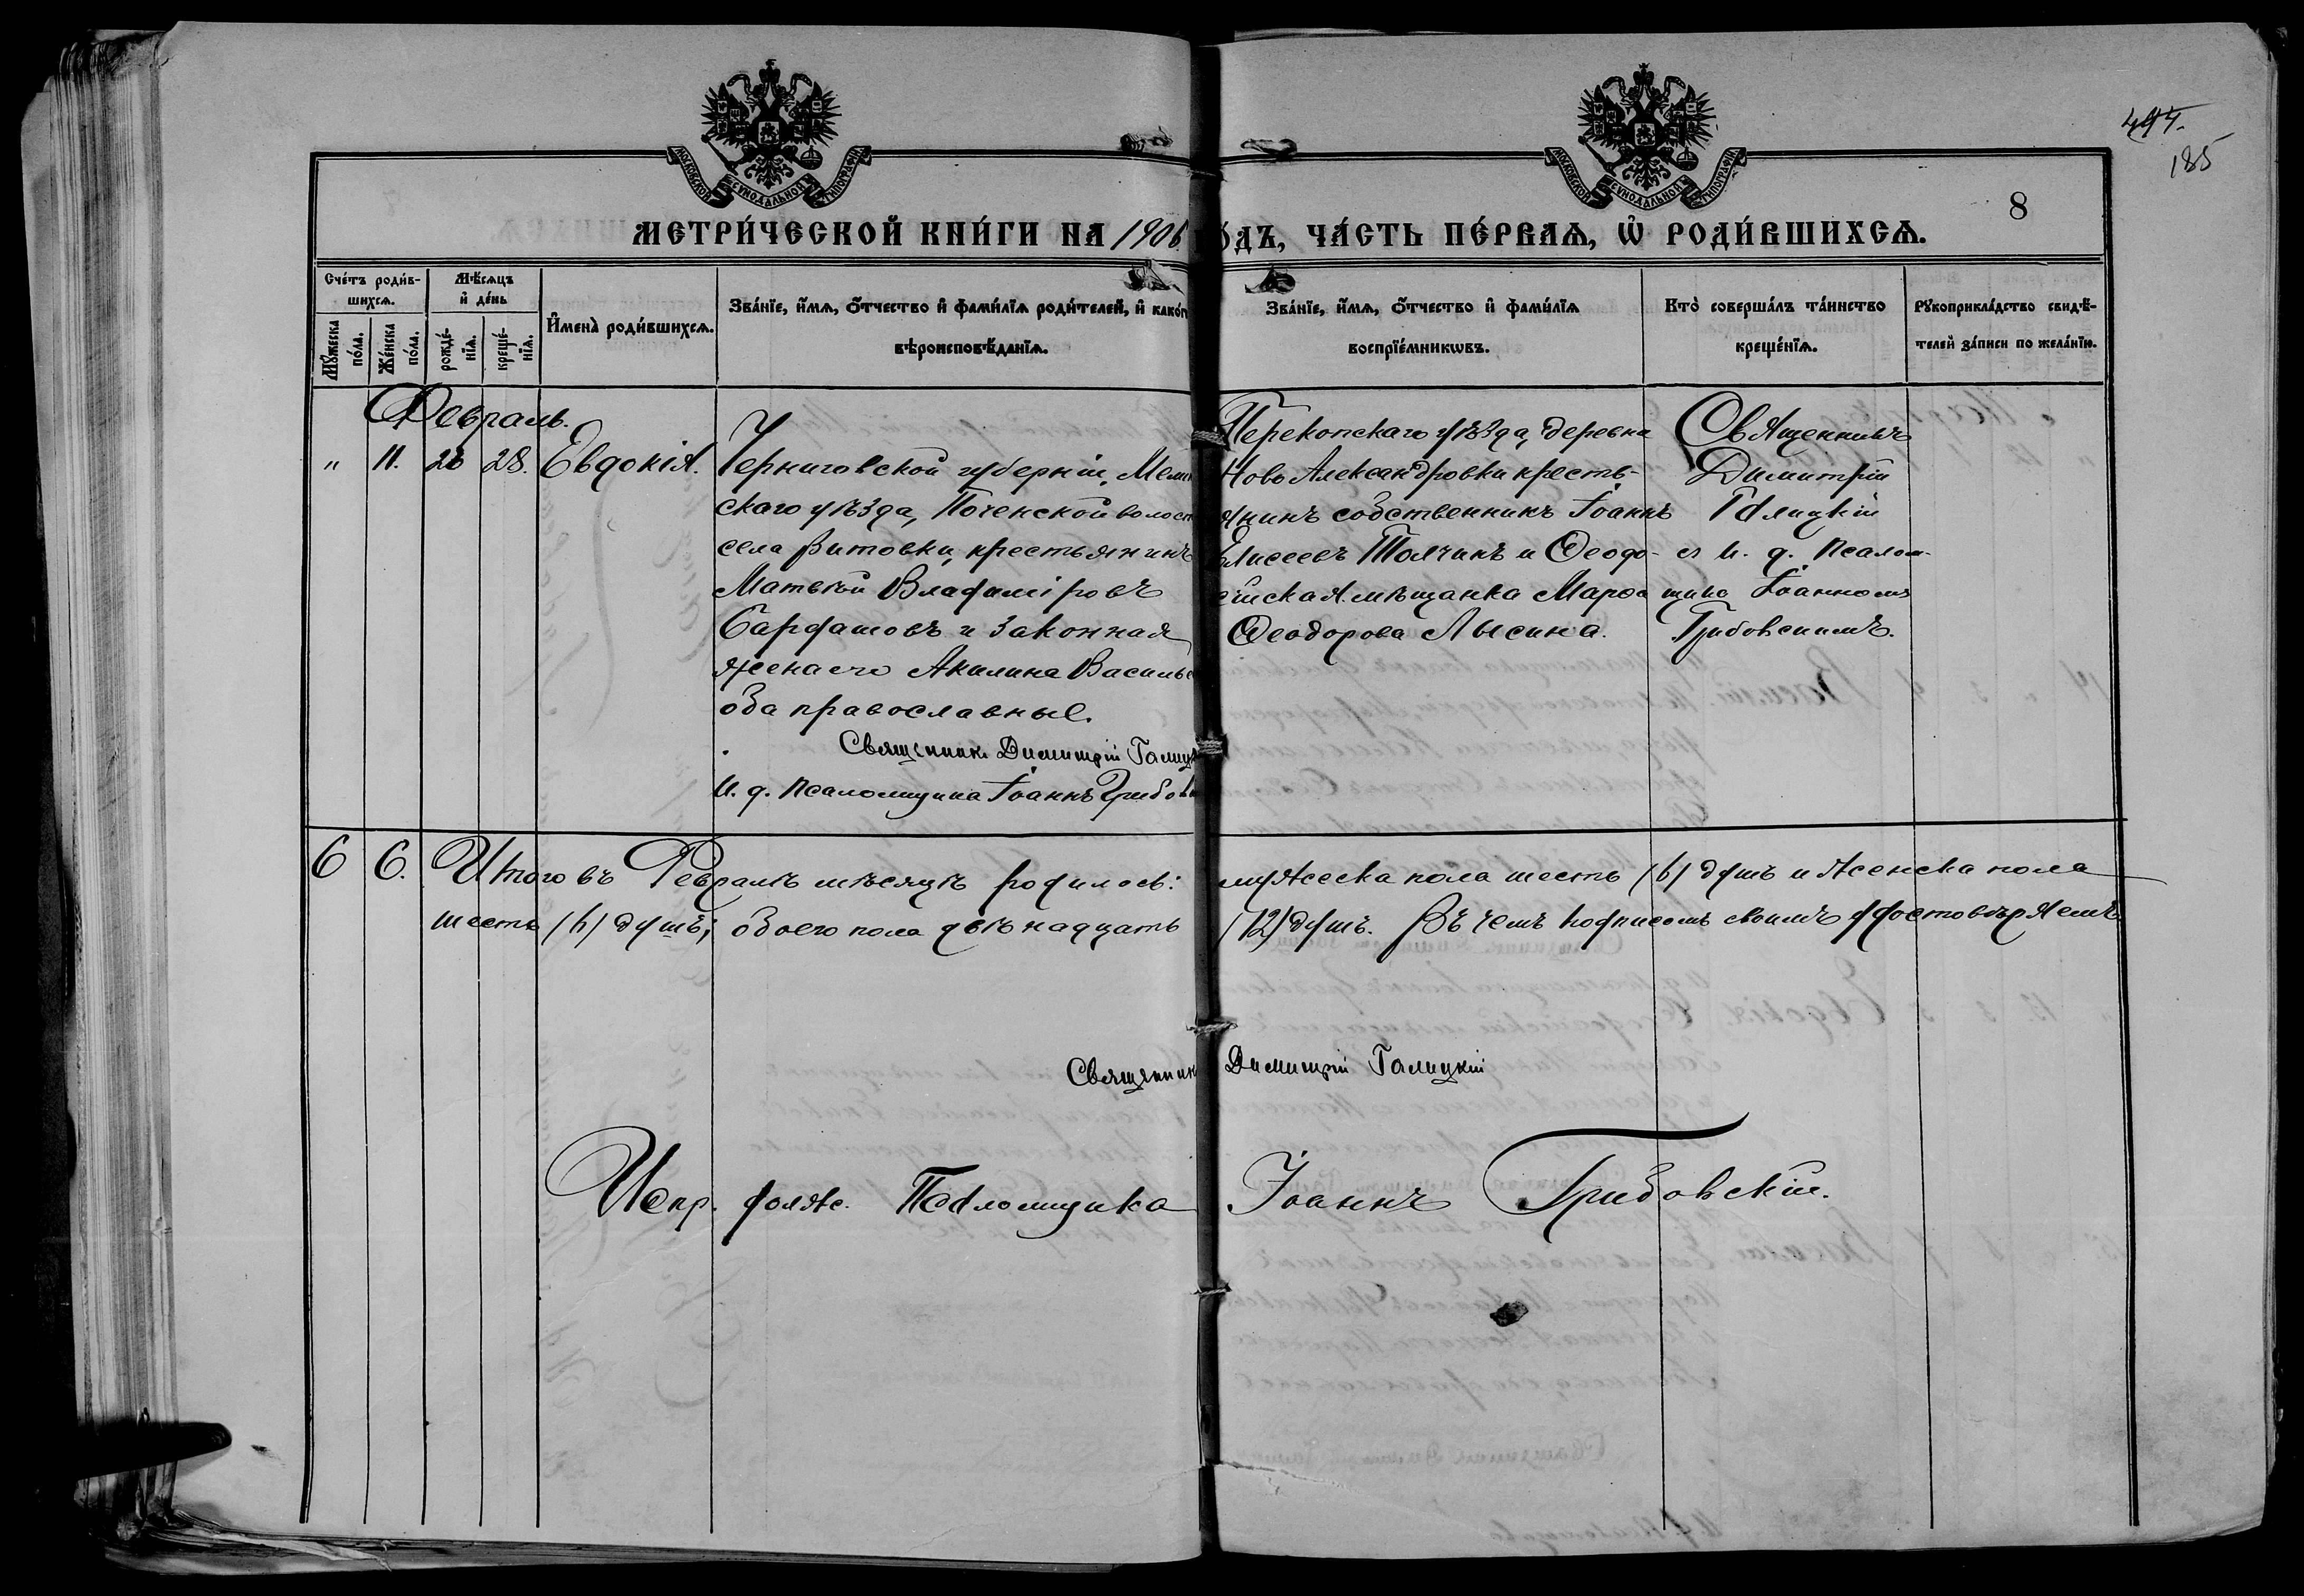 МОСКОВСКОЙ СѴНОДАЛЬНОЙ ТИПОГРАФІИ
МОСКОВСКОЙ СѴНОДАЛЬНОЙ ТИПОГРАФІИ
494.
185
8
МЕТРИ́ЧЕСКОЙ КНИ́ГИ НА 1906
О́ДЪ, ЧА́СТЬ ПЕ́РВАѦ, Ѡ҆ РОДИ́ВШИХСѦ.
Сче́тъ роди́в-
шихсѧ.
Мѣ́сѧцъ
и҆ де́нь
Мꙋ́жеска
по́ла.
Же́нска
по́ла.
рожде́-
нїѧ.
креще́-
нїѧ.
И҆мена̀ роди́вшихсѧ.
Зва́нїе, и҆́мѧ, ѻ҆́тчество и҆ фами́лїѧ роди́телей, и҆ како́г
вѣроисповѣ́данїѧ.
Зва́нїе, и҆́мѧ, ѻ҆́тчество и҆ фами́лїѧ
воспрїе́мникѡвъ.
Кто̀ соверша́лъ та́инство
креще́нїѧ.
Рꙋкоприкла́дство свидѣ́-
телей за́писи по жела́нїю.
Февраль.
" 11. 26 28. Евдокія.
Черниговской губерніи,
скаго уѣзда, Поченской волост
села Витовки, крестьянинъ
Матвѣй Владиміровъ
Сарфатовъ и законная
жена его Акилина Василье
оба православные.
Священникъ Димитрій Галиц
И. д. Псаломщика Іоаннъ Грибов
Перекопскаго уѣзда, деревни
Ново Александровки кресть-
янинъ собственникъ Іоаннъ
Елисеевъ Толчинъ и Ѳеодо-
сійская мѣщанка Марѳа
Ѳеодорова Лысина.
Священникъ
Димитрій
Галицкій
съ и. д. Псалом-
щика Іоанномъ
Грибовскимъ.
6 6. Итого въ Февралѣ мѣсяцѣ родилось: мужеска пола шесть (6) душъ и женска пола
шесть (6) душъ; обоего пола двѣнадцать (12) душъ. Въ чемъ подписомъ своимъ удостовѣряемъ
Священник Димитрій Галицкій
Испр. долж. Псаломщика Іоаннъ Грибовскій.